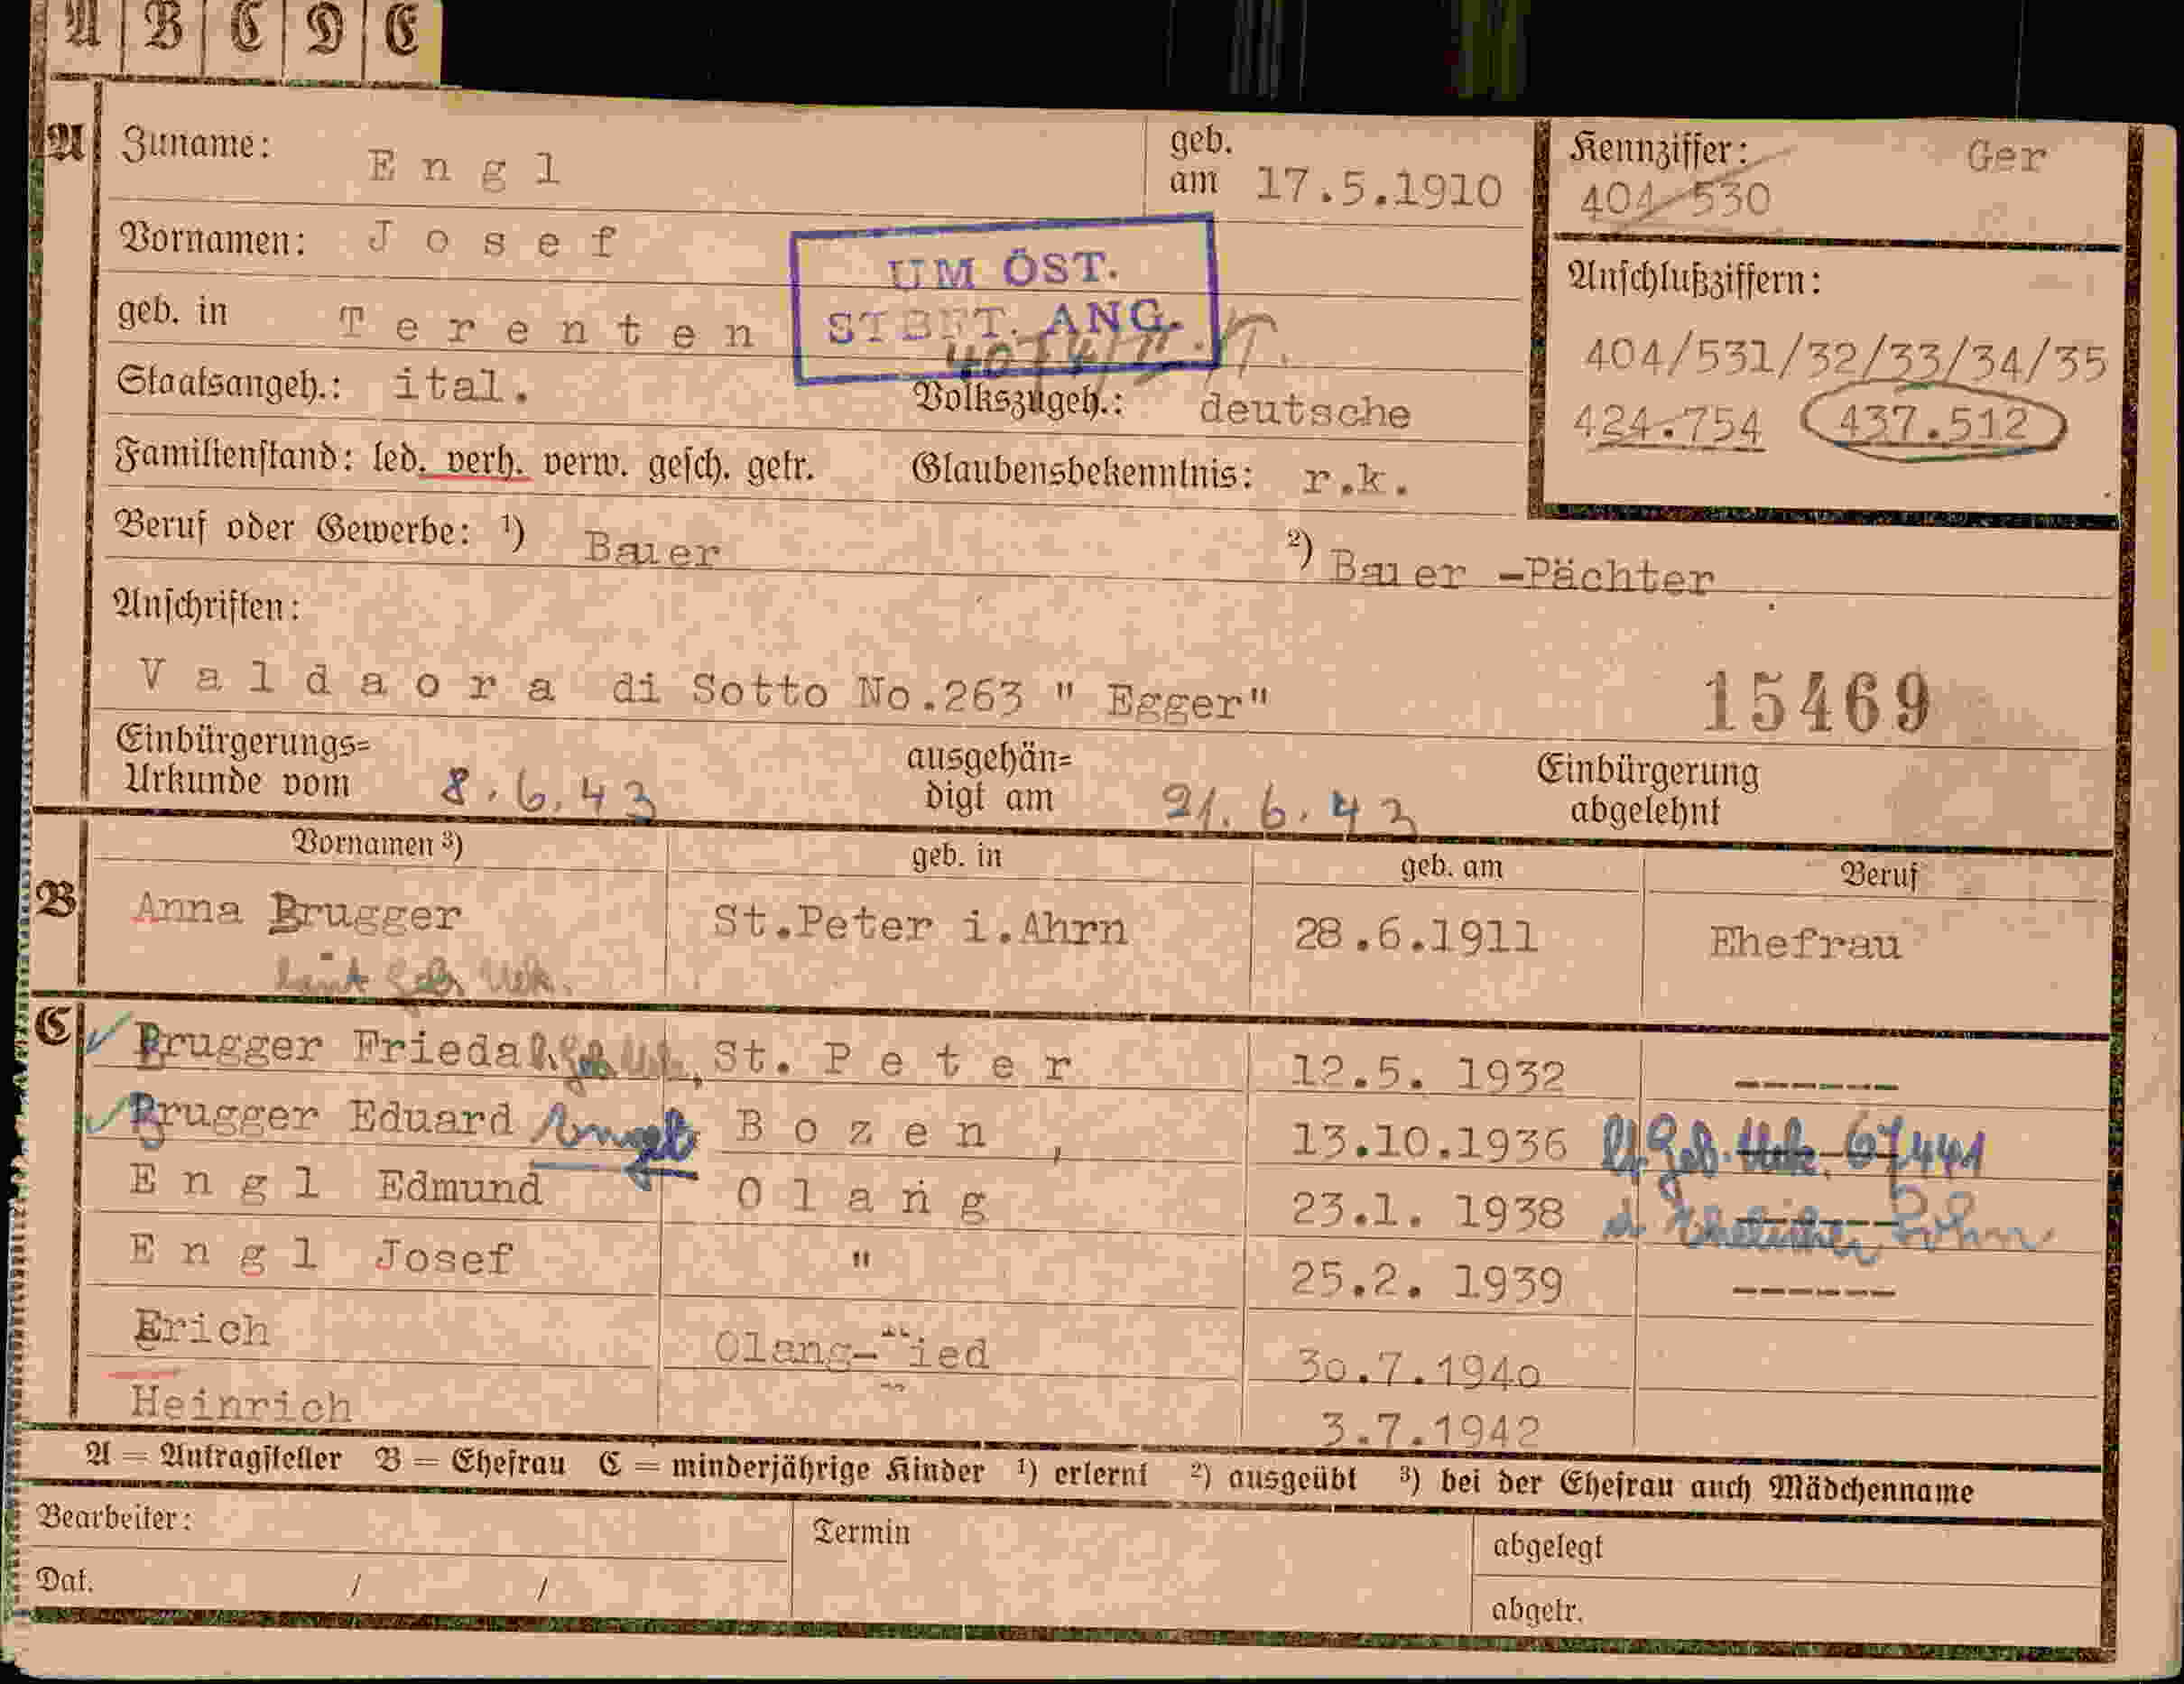 A B C D E
A Zuname: Engl geb. am 17.5.1910 Kennziffer: Ger
404-530
Vornamen: Josef
UM ÖST.
STBFT. ANG.
geb. in Terenten
Anschlußziffern:
404/531/32/33/34/35
424.754 437.512
Staatsangeh.: ital. Volkszugeh.: deutsche
Familienstand: led. verh. verw. gesch. getr. Glaubensbekenntnis: r.k.
Beruf oder Gewerbe: 1) Bauer 2) Bauer -Pächter
Anschriften:
Valdaora di Sotto No.263 " Egger"
15469
Einbürgerungs=
Urkunde vom 8.6.43 ausgehän=
digt am 21.6.43 Einbürgerung
abgelehnt
Vornamen 3) geb. in geb. am Beruf
B Anna Brugger St.Peter i.Ahrn 28.6.1911 Ehefrau
C Brugger Frieda St. Peter 12.5. 1932 ------
Brugger Eduard Bozen, 13.10.1936 lt. Geb. Urk. 67441
Engl Edmund Olang 23.1. 1938 Sohn
Engl Josef " 25.2. 1939 ------
Erich Olang- 30.7.1940
Heinrich 3.7.1942
A = Antragsteller B = Ehefrau C = minderjährige Kinder 1) erlernt 2) ausgeübt 3) bei der Ehefrau auch Mädchenname
Bearbeiter: Termin abgelegt
Dat. / / abgetr.